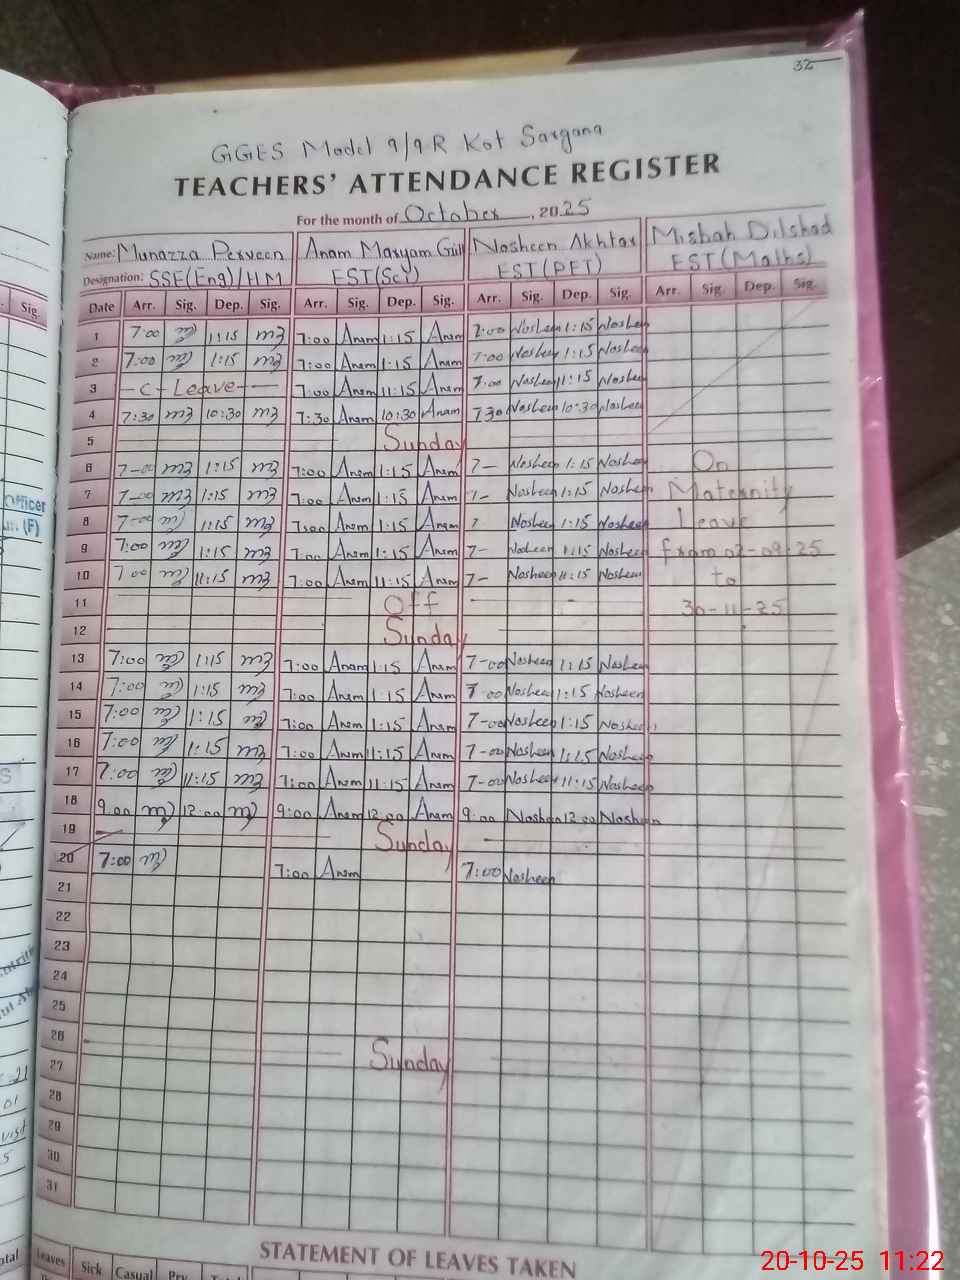 32
GGES Model 9/9-R Kot Sargana
TEACHERS' ATTENDANCE REGISTER
For the month of October, 2025
Name: Munazza Perveen Anam Maryam Gill Nosheen Akhtar Misbah Dilshad
Designation: SSE(Eng)/HM EST(Sci) EST(PET) EST(Maths)
Sig. Date Arr. Sig. Dep. Sig. Arr. Sig. Dep. Sig. Arr. Sig. Dep. Sig. Arr. Sig. Dep. Sig.
1 7:00 1:15 7:00 Anam 1:15 Anam 7:00 Nosheen 1:15 Nosheen
2 7:00 1:15 7:00 Anam 1:15 Anam 7:00 Nosheen 1:15 Nosheen
3 -C-Leave- 7:00 Anam 11:15 Anam 7:00 Nosheen 11:15 Nosheen
4 7:30 10:30 7:30 Anam 10:30 Anam 730 Nosheen 10:30 Nosheen
5 Sunday
6 7-00 1:15 7:00 Anam 1:15 Anam 7- Nosheen 1:15 Nosheen On
7 7-00 1:15 7:00 Anam 1:15 Anam 7- Nosheen 1:15 Nosheen Maternity
8 7-00 1:15 7:00 Anam 1:15 Anam 7 Nosheen 1:15 Nosheen Leave
9 7:00 1:15 7:00 Anam 1:15 Anam 7- Nosheen 1:15 Nosheen from 02-09-25
10 7:00 11:15 7:00 Anam 11:15 Anam 7- Nosheen 11:15 Nosheen to
11 Off 30-11-25
12 Sunday
13 7:00 1:15 7:00 Anam 1:15 Anam 7-00 Nosheen 1:15 Nosheen
14 7:00 1:15 7:00 Anam 1:15 Anam 7-00 Nosheen 1:15 Nosheen
15 7:00 1:15 7:00 Anam 1:15 Anam 7-00 Nosheen 1:15 Nosheen
16 7:00 1:15 7:00 Anam 1:15 Anam 7-00 Nosheen 1:15 Nosheen
17 7:00 11:15 7:00 Anam 11:15 Anam 7-00 Nosheen 11:15 Nosheen
18 9:00 12:00 9:00 Anam 12:00 Anam 9:00 Nosheen 12:00 Nosheen
19 Sunday
20 7:00 7:00 Anam 7:00 Nosheen
21
22
23
24
25
26 Sunday
27
28
29
30
31
STATEMENT OF LEAVES TAKEN
Leaves Sick Casual
Officer
(F)
visit
20-10-25 11:22